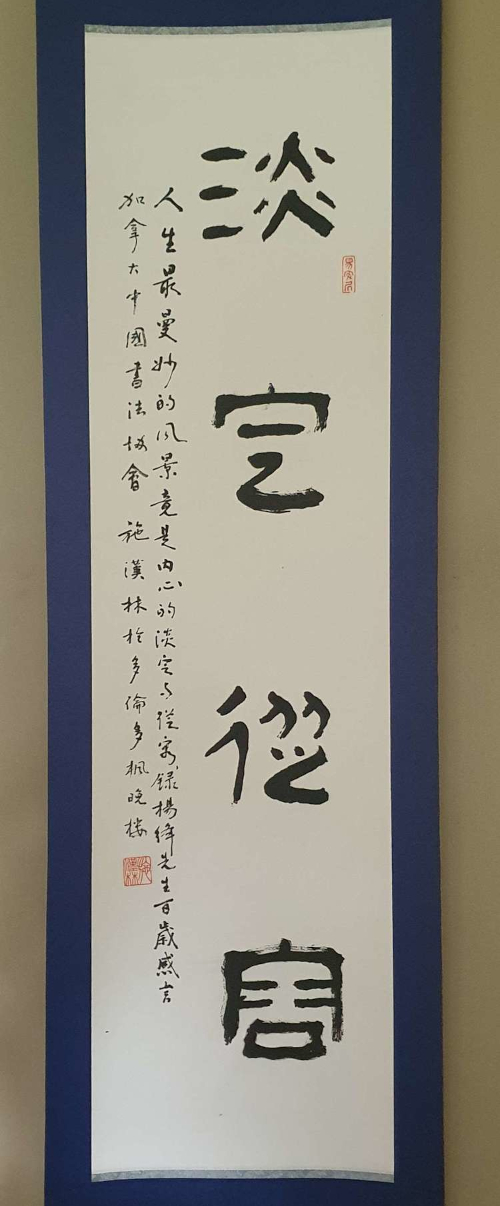 淡定從容
人生最曼妙的风景竟是内心的淡定与從容錄楊绛先生百歲感言
加拿大中國書法协會施漢林於多倫多枫晚楼